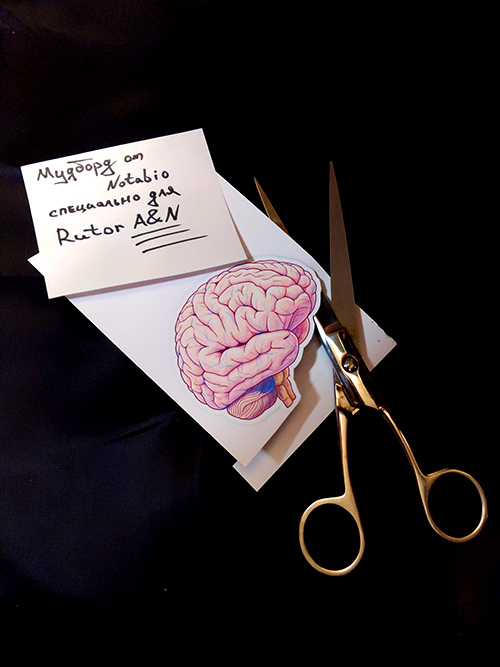 Мудборд от
Notabio
специально для
Rutor A&N